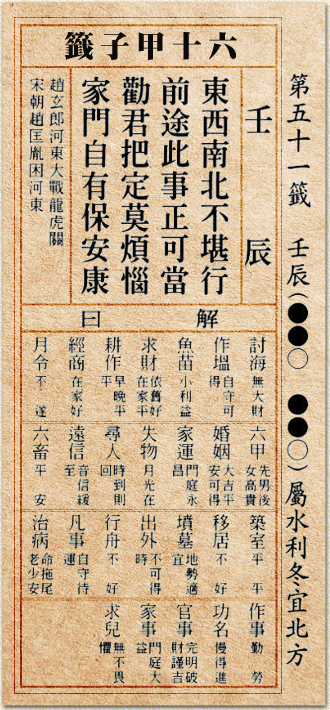 第五十一籤 壬辰(●●○ ●●○)屬水利冬宜北方
六十甲子籤
壬辰
東西南北不堪行
前途此事正可當
勸君把定莫煩惱
家門自有保安康
趙玄郎河東大戰龍虎關
宋朝趙匡胤困河東
解曰
討海 無大財
作塭 自守可得
魚苗 小利益
求財 依舊好在家平
耕作 早晚平平
經商 在家好
月令 不遂
六甲 先男後女高貴
婚姻 大吉平安可得
家運 門庭永昌
失物 月光在
尋人 時到則回
遠信 音信緩至
六畜 平安
築室 平平
移居 不好
墳墓 地勢適宜
出外 不可得時
行舟 不好
凡事 自守待運
治病 命拖尾老少安
作事 勤勞
功名 慢得進
官事 完明破財謹吉
家事 門庭大益
求兒 無不畏懼